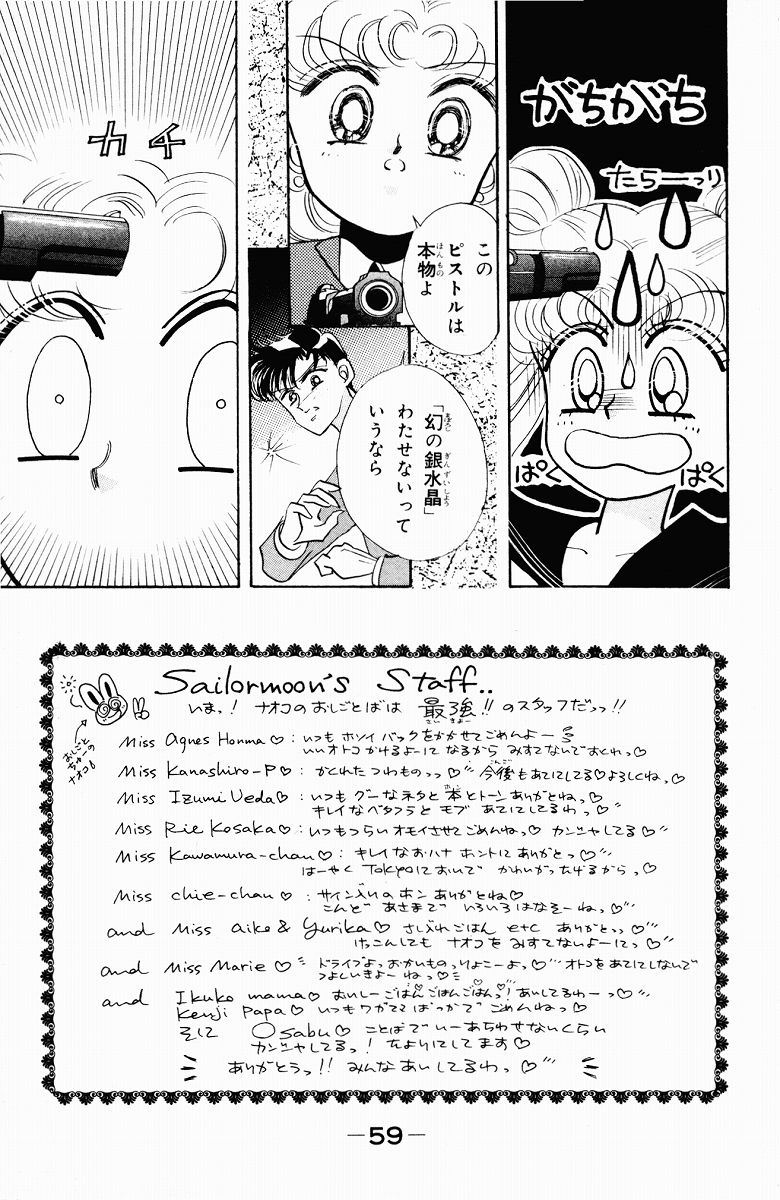 がちがち
たらーっり
ぱく
ぱく
この
ピストルは
本物よ
ほんもの
「幻の銀水晶」
まぼろし
ぎんずいしょう
わたせないって
いうなら
カチ
Sailormoon's Staff..
いまっ! ナオコのおしごとばは 最強!! のスタッフだっっ!!
さいきょー
おしごと
ちゅーの
ナオコ
Miss Agnes Honma♡: いつもホソイバックをかかせてごめんよー
いいオトコかけるよーになるから みすてないでおくれっ♡
Miss Kanashiro-P♡: かくれたつわものっっ♡ 今後もあてにしてる♡よろしくねっ♡
こんご
Miss Izumi Ueda♡: いつもグーなネタと本とトーンありがとねっ♡
キレイなベタフラとモブ あてにしてるわっ♡
Miss Rie Kosaka♡: いつもつらいオモイさせてごめんねっ♡ カンシャしてる♡
Miss Kawamura-chan♡: キレイなおハナ ホントにありがとっ♡
はーやく Tokyoにおいで かわいがったげるからっ♡
Miss chie-chan♡: サイン入りのホンありがとね♡
こんど あさまで いろいろはなそーねっ♡
and Miss Aiko & Yurika♡ さしいれごはん etc ありがとっっ♡
けっこんしても ナオコをみすてないよーにっ♡
and Miss Marie♡ ドライブよっおかいものっりょこーよっ♡ オトコをあてにしないで
つよしいきよーねっ♡
and Ikuko mama♡ おいしーごはんごはんごはんっ! あいしてるわーっ♡
Kenji papa♡ いつもワガママばっかでごめんねっ♡
そして Osabu♡ ことばでいーあらわせないくらい
カンシャしてるっ! たよりにしてます♡
ありがとうっ!! みんなあいしてるわっ♡
—59—